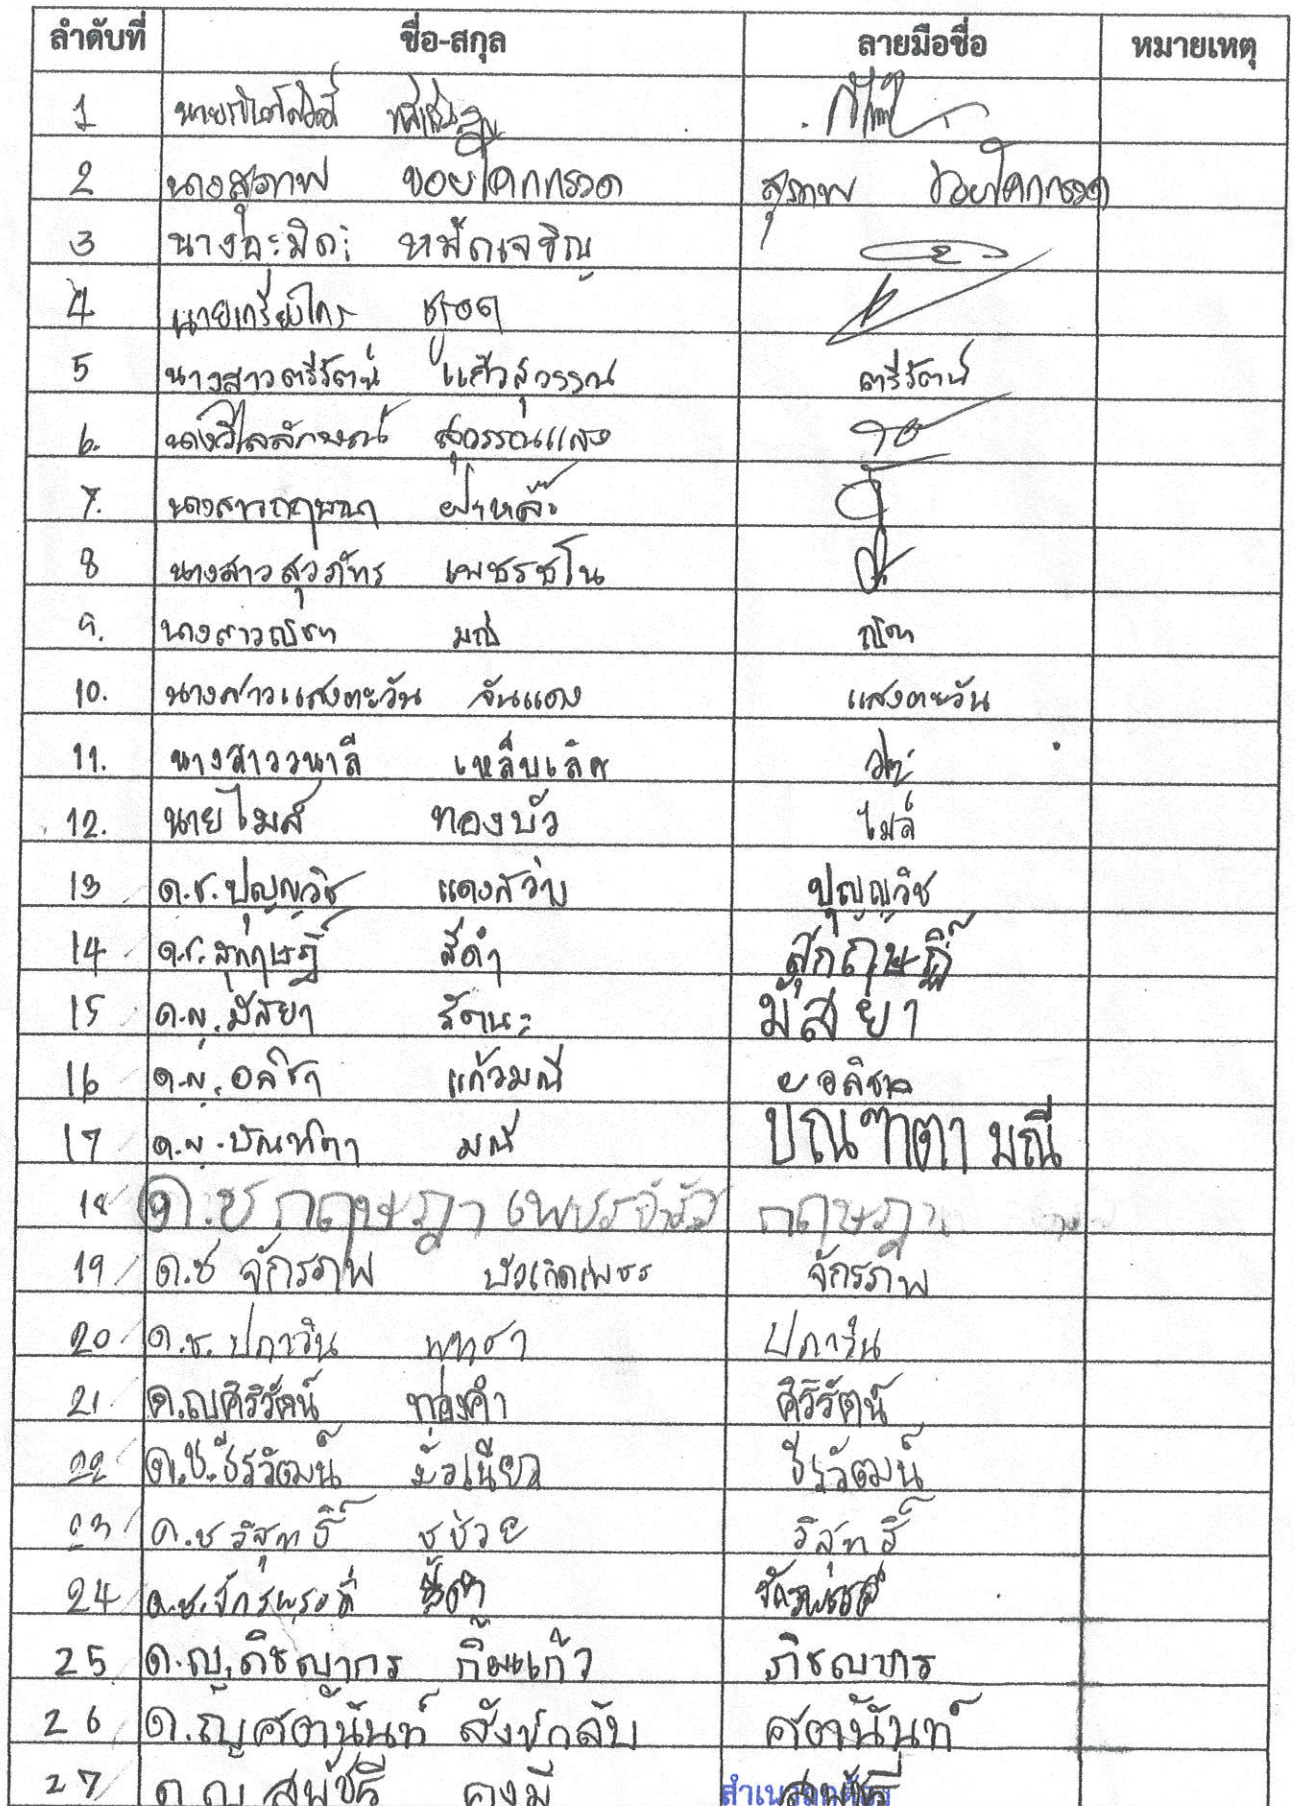 ลำดับที่ ชื่อ-สกุล ลายมือชื่อ หมายเหตุ
1
2 นางสุภาพ ขอยโคกกรวด สุภาพ ขอยโคกกรวด
3 นาง หมัดเจริญ
4 นายเกรียงไกร ชูรอด
5 นางสาวตรีรัตน์ แก้วสุวรรณ ตรีรัตน์
6. นางวิไลลักษณ์ สุวรรณแสง
7. นางสาวกฤษณา
8 นางสาวสุวภัทร เพชรชโน
9. นางสาวณิชา มณี ณิชา
10. นางสาวแสงตะวัน จันแดง แสงตะวัน
11. นางสาววนาลี เหล็บเลิศ
12. นายไมล์ ทองบัว ไมล์
13 ด.ช.ปุญญวิช แดงสว่าง ปุญญวิช
14 ด.ช.สุกฤษฎิ์ สีดำ สุกฤษฎิ์
15 ด.ญ.มัสยา รัตนะ มัสยา
16 ด.ญ.อลิชา แก้วมณี อลิชา
17 ด.ญ.บัณฑิตา มณี บัณฑิตา มณี
18 ด.ช กฤษฎา เพชรจำรัส กฤษฎา
19 ด.ช จักรภพ บัวเกิดเพชร จักรภพ
20 ด.ช. ปภาวิน พุทธา ปภาวิน
21 ด.ญศิริรัตน์ ทองคำ ศิริรัตน์
22 ด.ช.ธีรวัฒน์ มั่วเนียว ธีรวัฒน์
23 ด.ช วิสุทธิ์ ชูช่วย วิสุทธิ์
24 ด.ช.จักรพรรดิ์ สีดำ จักรพรรดิ์
25 ด.ญ.ภิชญากร กิ้มแก้ว ภิชญากร
26 ด.ญศตานันท์ สังข์กลับ ศตานันท์
27 ด.ญ. คงมี สำเนาถูกต้อง